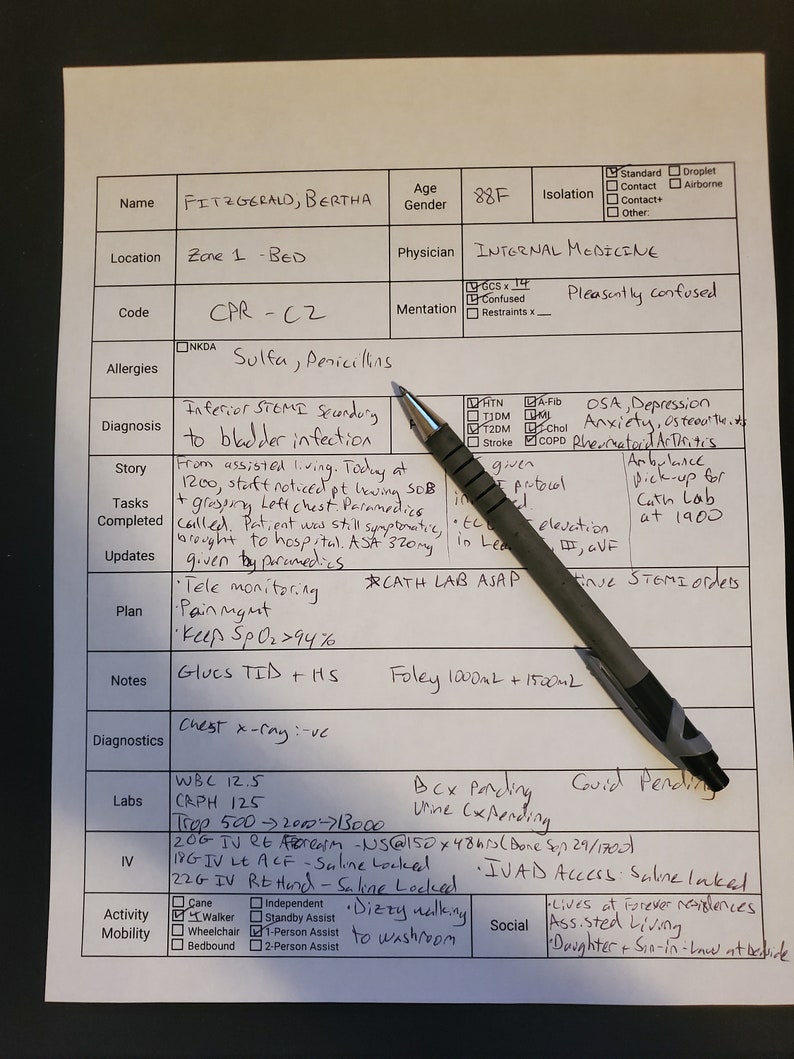 Name FITZGERALD, BERTHA Age Gender 88F Isolation ☑ Standard ☐ Droplet
☐ Contact ☐ Airborne
☐ Contact+
☐ Other:
Location Zone 1 - BED Physician INTERNAL MEDICINE
Code CPR - C2 Mentation ☑ GCS x 14 Pleasantly confused
☑ Confused
☐ Restraints x __
Allergies ☐ NKDA Sulfa, Penicillins
Diagnosis Inferior STEMI Secondary
to bladder infection
☑ HTN ☑ A-Fib OSA, Depression
☐ T1DM ☑ MI Anxiety, Osteoarthritis
☑ T2DM ☑ Chol
☐ Stroke ☑ COPD Rheumatoid Arthritis
Story
Tasks
Completed
Updates
From assisted living. Today at
1200, staff noticed pt having SOB
+ grasping Left chest. Paramedics
called. Patient was still symptomatic,
brought to hospital. ASA 320mg
given by paramedics
given
protocol
elevation
in III, aVF
Ambulance
pick-up for
Cath Lab
at 1900
Plan · Tele monitoring *CATH LAB ASAP STEMI orders
· Pain mgmt
· Keep SpO2 > 94%
Notes Glucs TID + HS Foley 1000mL + 1500mL
Diagnostics Chest x-ray: -ve
Labs WBC 12.5 B Cx Pending Covid Pending
CRPH 125 Urine Cx Pending
Trop 500 → 2000 → 13000
IV 20G IV Rt Forearm - NS @ 150 x 48hrs (Done Sep 29/1700)
18G IV Lt ACF - Saline Locked · IVAD Access: Saline locked
22G IV Rt Hand - Saline Locked
Activity
Mobility
☐ Cane ☐ Independent · Dizzy walking
☑ 4 Walker ☐ Standby Assist to washroom
☐ Wheelchair ☑ 1-Person Assist
☐ Bedbound ☐ 2-Person Assist
Social · Lives at Forever residences
Assisted Living
· Daughter + Son-in-law at bedside